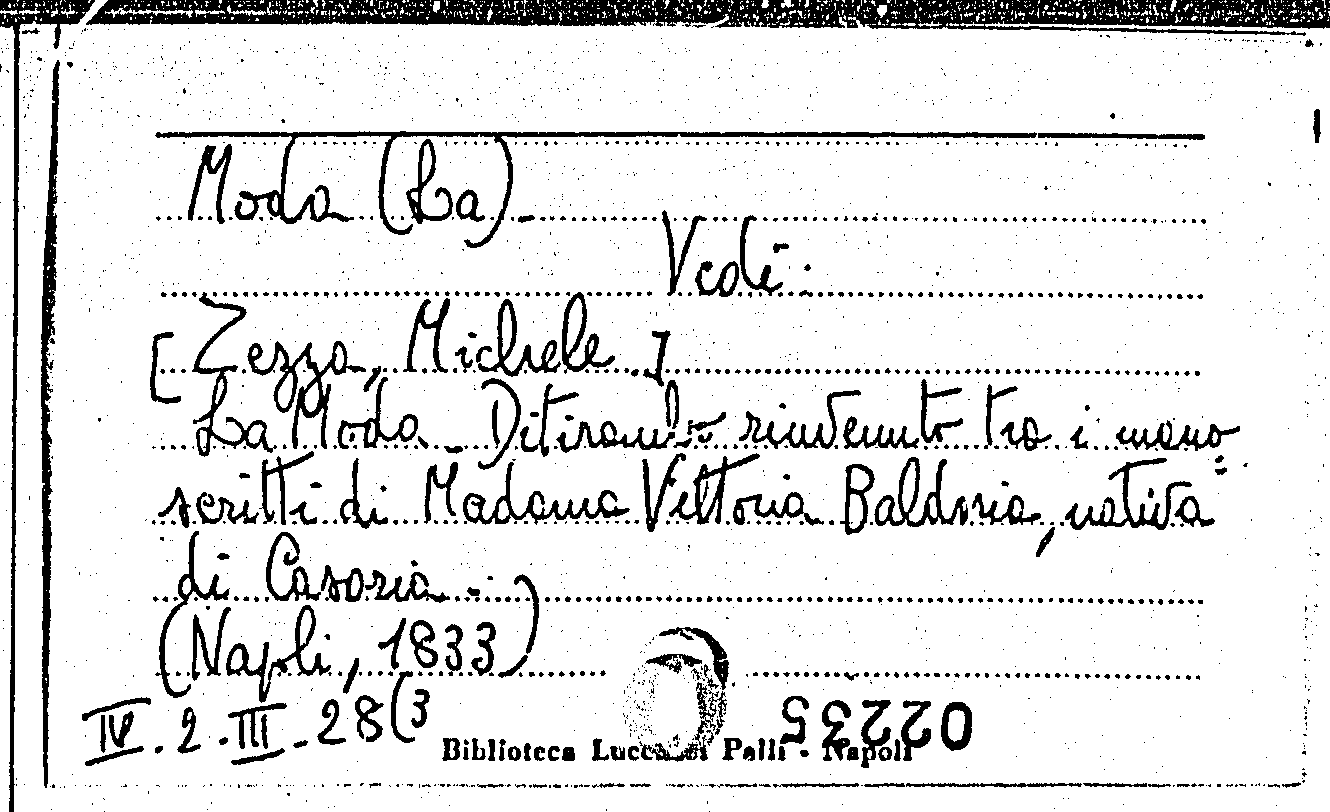 Moda (La)._
Vedi:
[Zezza, Michele.]
La Moda_ Ditirambo rinvenuto tra i mano=
scritti di Madama Vittoria Baldoria, nativa
di Casoria._
(Napoli, 1833)
IV.2.III._28(3
02235
Biblioteca Lucchesi Palli - Napoli